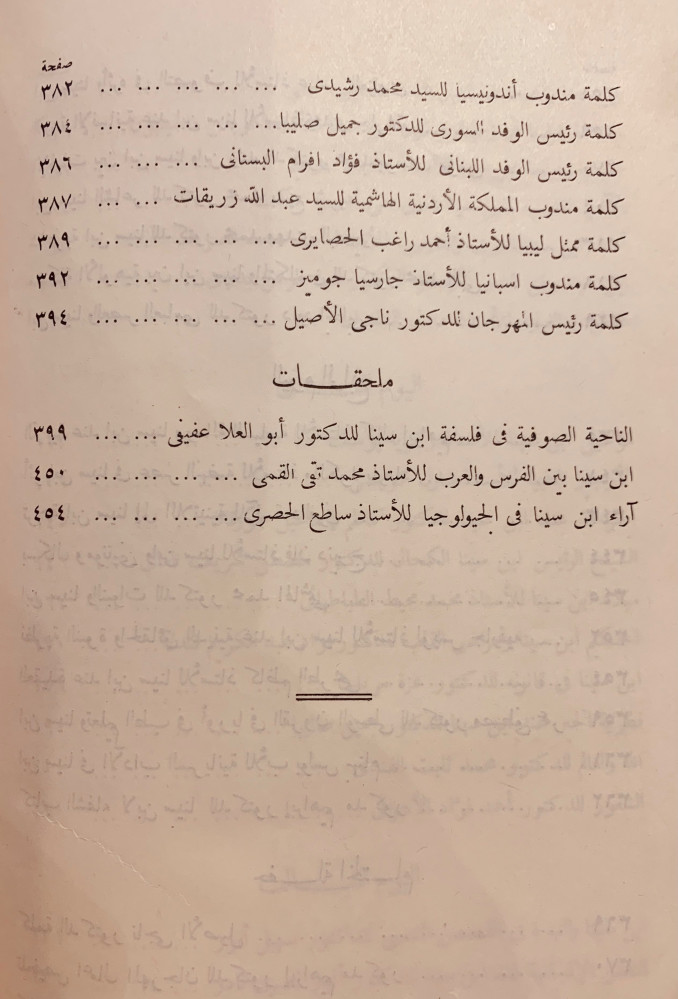 صفحة
كلمة مندوب أندونيسيا للسيد محمد رشيدى ... ... ... ... ... ٣٨٢
كلمة رئيس الوفد السورى للدكتور جميل صليبا... ... ... ... ... ٣٨٤
كلمة رئيس الوفد اللبنانى للأستاذ فؤاد افرام البستانى ... ... ... ٣٨٦
كلمة مندوب المملكة الأردنية الهاشمية للسيد عبد الله زريقات ... ... ٣٨٧
كلمة ممثل ليبيا للأستاذ أحمد راغب الحصايرى ... ... ... ... ... ٣٨٩
كلمة مندوب اسبانيا للأستاذ جارسيا جوميز ... ... ... ... ... ٣٩٢
كلمة رئيس المهرجان للدكتور ناجى الأصيل ... ... ... ... ... ٣٩٤
ملحقـــات
الناحية الصوفية فى فلسفة ابن سينا للدكتور أبو العلا عفيفى ... ... ... ٣٩٩
ابن سينا بين الفرس والعرب للأستاذ محمد تقى القمى ... ... ... ... ٤٥٠
آراء ابن سينا فى الجيولوجيا للأستاذ ساطع الحصرى ... ... ... ... ٤٥٤